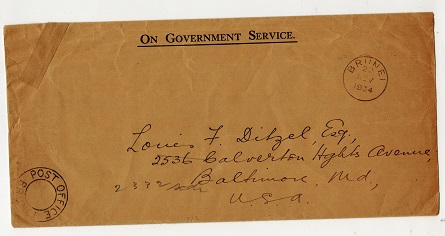 ON GOVERNMENT SERVICE.
BRUNEI
1934
Louis F. Ditzel, Esq,
2536 Calverton Hghts Avenue,
Baltimore, Md,
U.S.A.
POST OFFICE